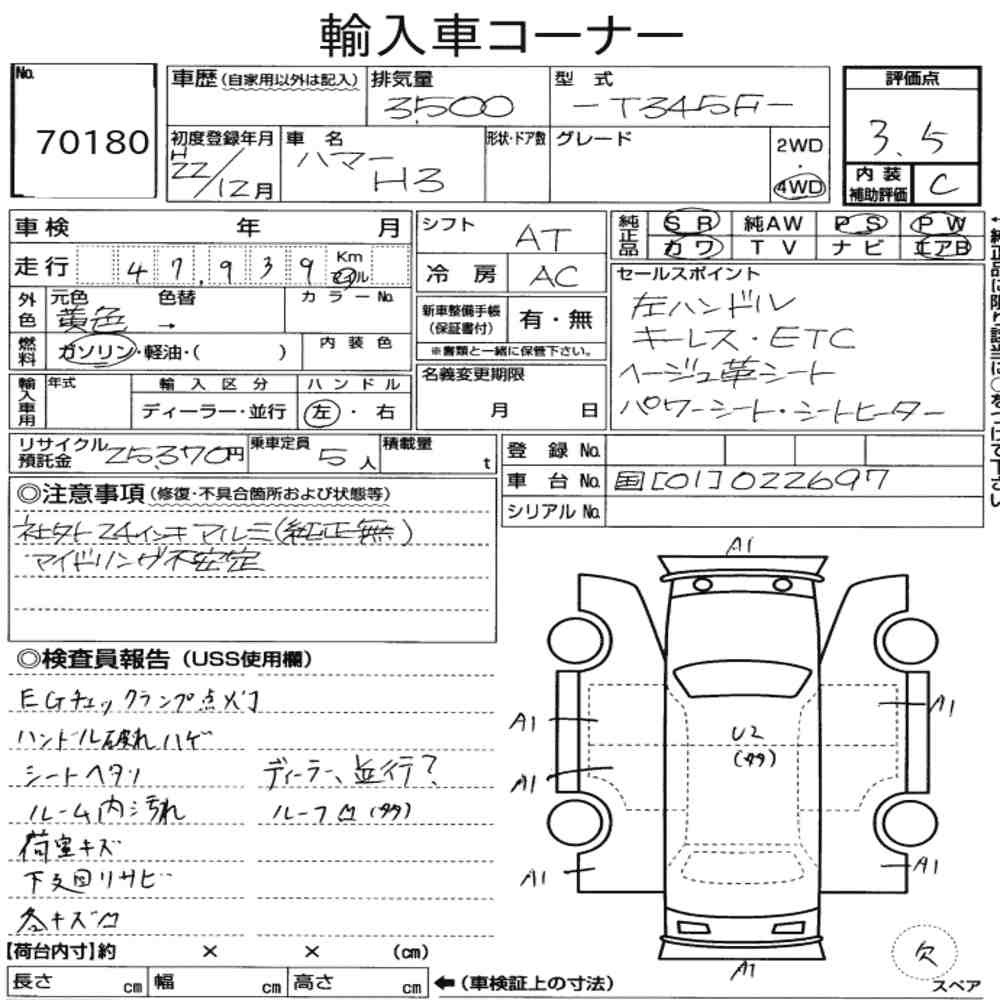 輸入車コーナー
No. 70180
車歴(自家用以外は記入)
排気量 3500
型式 -T345F-
評価点 3.5
内装補助評価 C
初度登録年月 H22/12月
車名 ハマー H3
形状・ドア数
グレード
2WD・4WD
車検 年 月
走行 47,939 Km マイル
シフト AT
冷房 AC
純正品 SR 純AW PS PW
カワ TV ナビ エアB
←純正品に限り該当に○をつけて下さい
セールスポイント
左ハンドル
キーレス・ETC
ベージュ革シート
パワーシート・シートヒーター
外色 元色 黄色 → 色替
カラーNo.
燃料 ガソリン・軽油・( )
内装色
新車整備手帳(保証書付) 有・無
※書類と一緒に保管下さい。
輸入車用 年式
輸入区分 ディーラー・並行
ハンドル 左・右
名義変更期限 月 日
リサイクル預託金 25,370円
乗車定員 5人
積載量 t
登録No.
車台No. 国[01]022697
シリアルNo.
◎注意事項(修復・不具合箇所および状態等)
社外 24インチ アルミ(純正無)
アイドリング不安定
◎検査員報告(USS使用欄)
EGチェックランプ点灯
ハンドル破れハゲ
シートヘタリ
ディーラー、並行?
ルーム内汚れ
ルーフ凹(タタ)
荷室キズ
下廻りサビ
各キズ凹
【荷台内寸】約 × × (cm)
長さ cm 幅 cm 高さ cm ←(車検証上の寸法)
A1
A1
A1
U2
(タタ)
A1
A1
A1
A1
欠
スペア